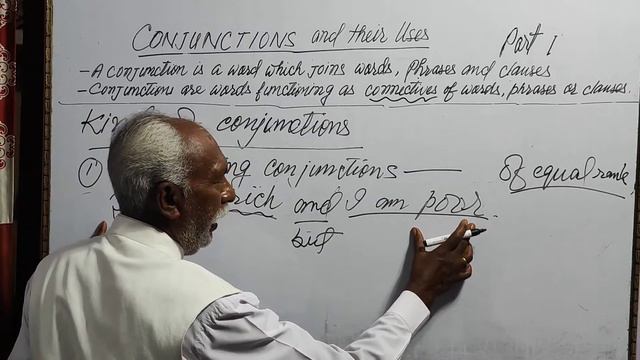 CONJUNCTIONS and their Uses Part 1
- A conjunction is a word which joins words, phrases and clauses
- Conjunctions are words functioning as connectives of words, phrases or clauses.
conjunctions
① ng conjunctions — Of equal rank
rich and I am poor.
but